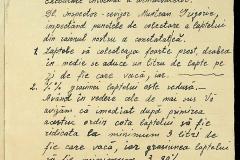 Dl. inspector-consilier Muntean Grigorie,
împedând punctele de colectare a laptelui
din raionul nostru a constatat că.
1. Laptele să colectează foarte prost, deabea
în medie se aduce un litru de lapte pe
zi de fie care vacă, iar
2. % grăsimei laptelui este redusă.
Având în vedere cele de mai sus Vă
avizăm ca imediat după primirea
acestui ordin cota laptelui să fie
ridicată la minimum 3 litri de
fie care vacă, iar grăsimea laptelui
să fie minimum 3,90%